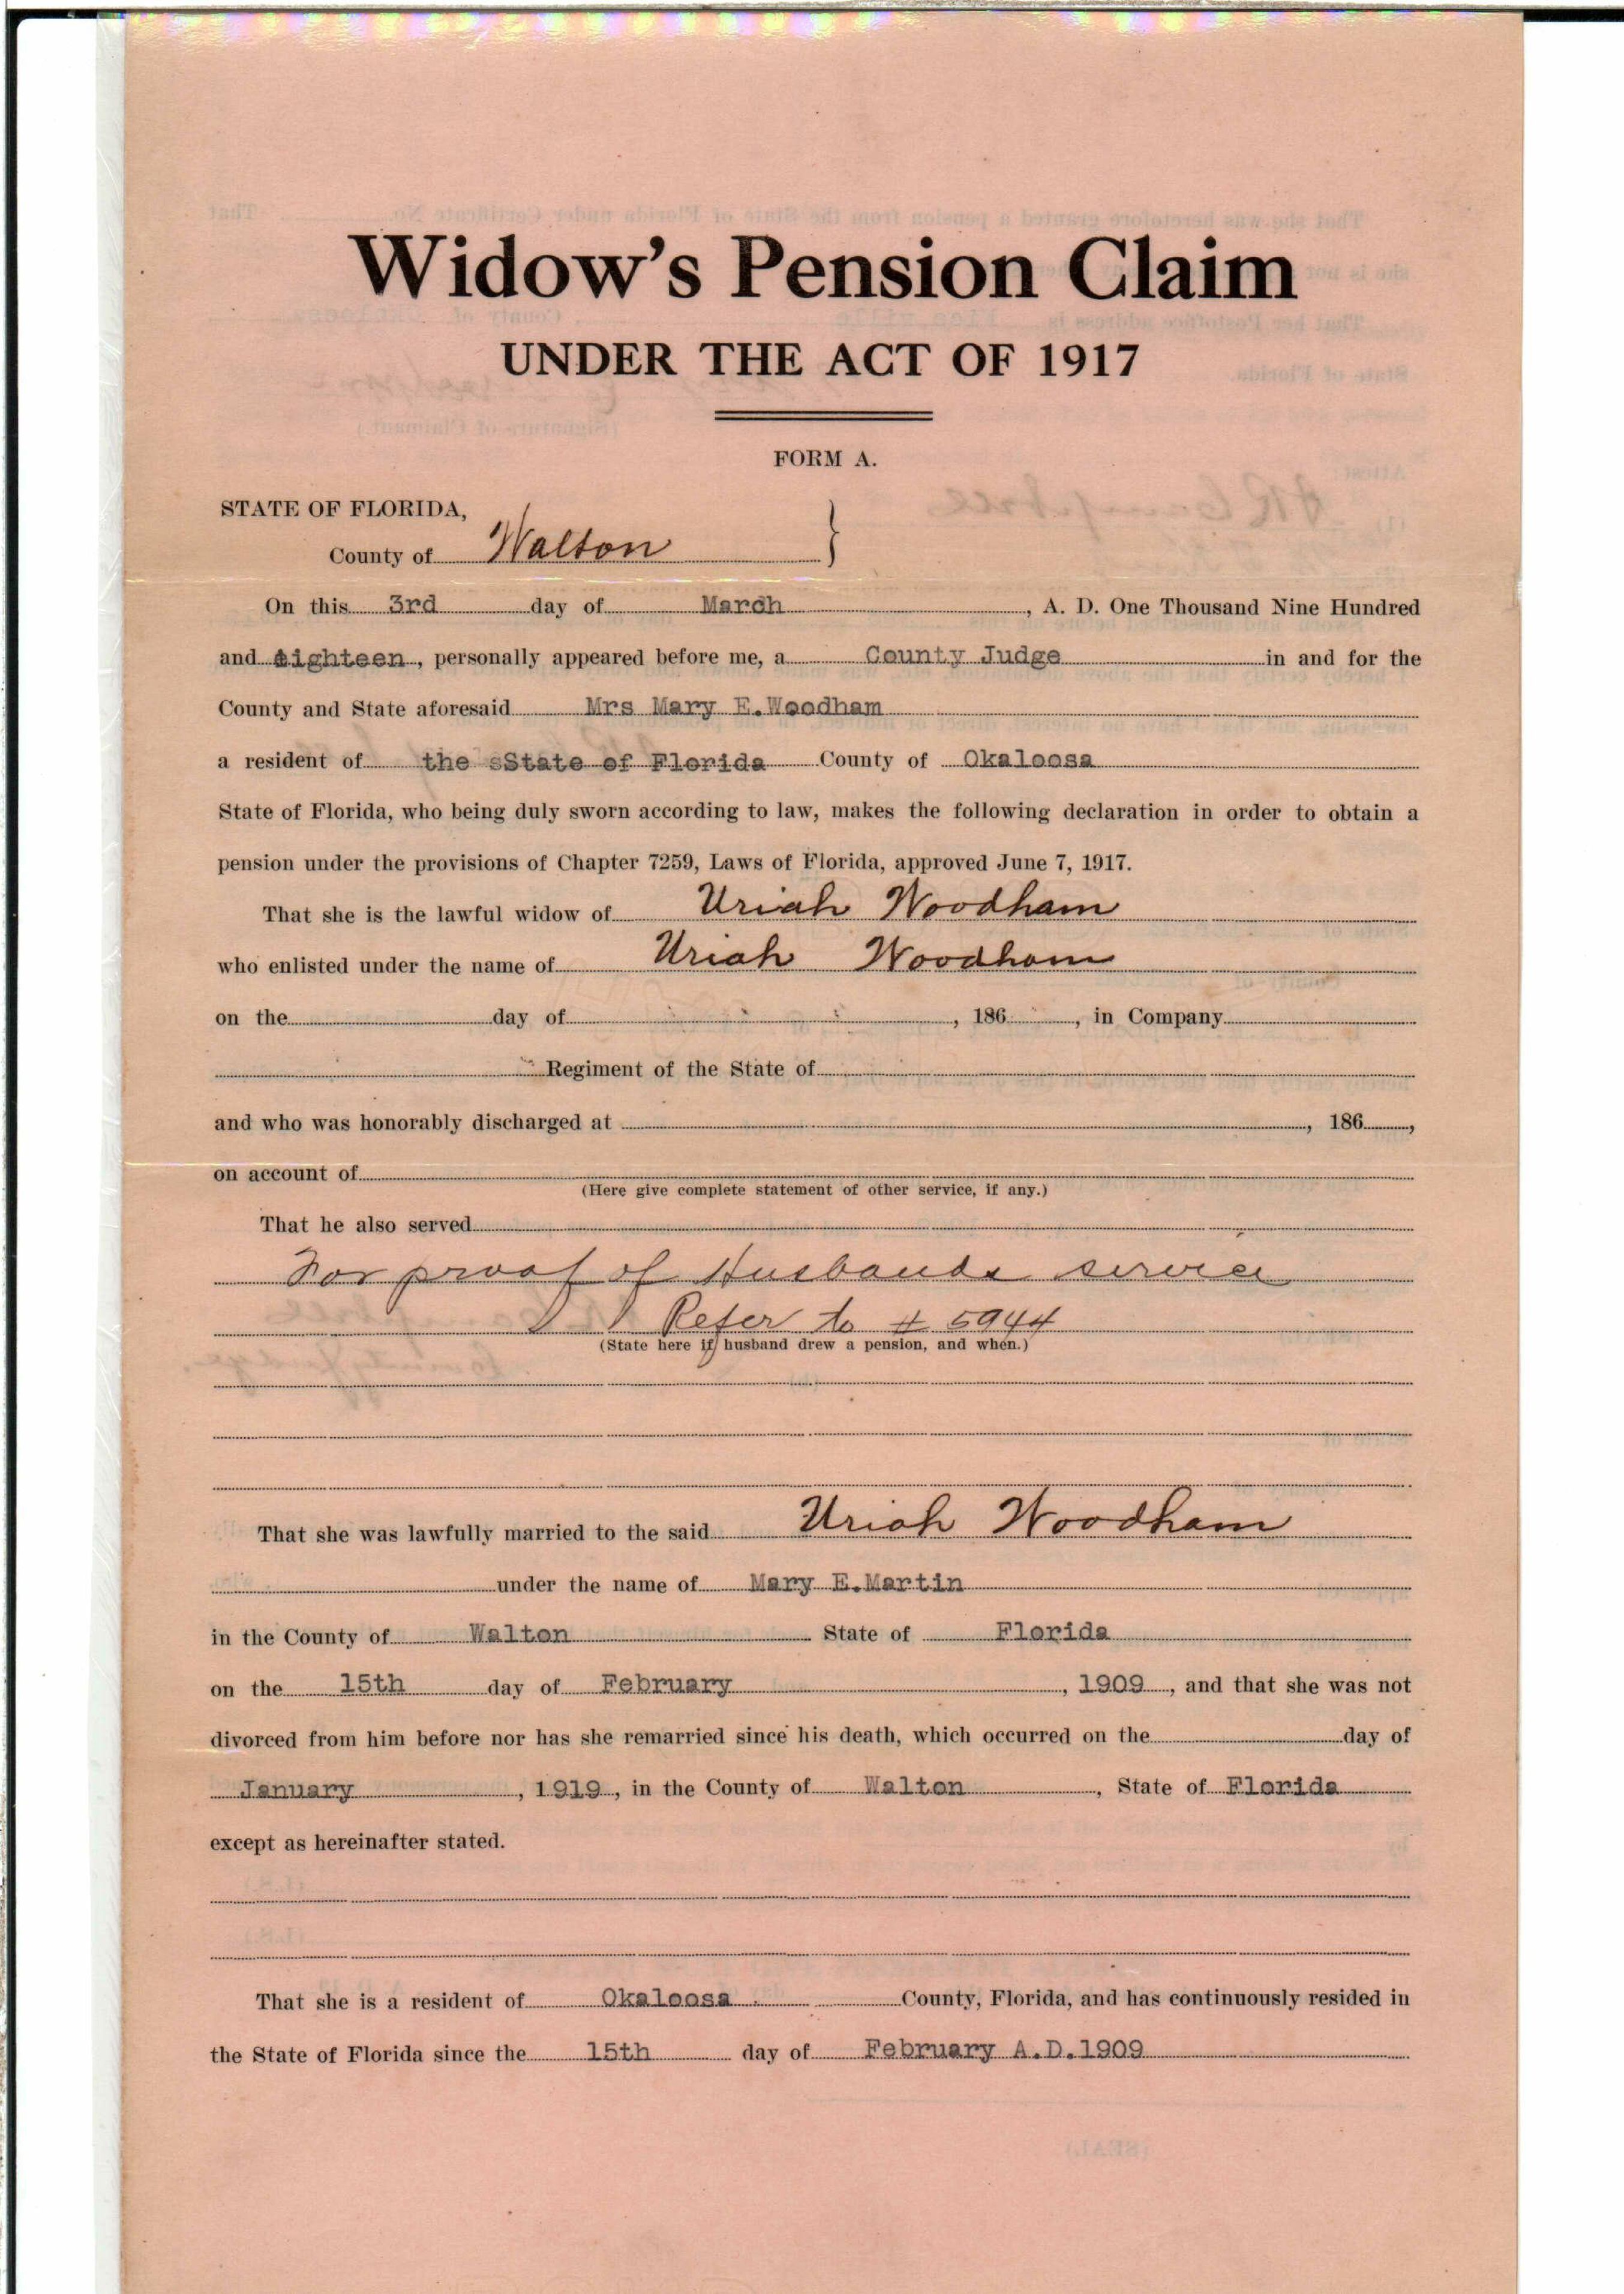 Widow's Pension Claim
UNDER THE ACT OF 1917
FORM A.
STATE OF FLORIDA,
County of Walton }
On this 3rd day of March, A. D. One Thousand Nine Hundred
and eighteen, personally appeared before me, a County Judge in and for the
County and State aforesaid Mrs Mary E.Woodham
a resident of the sState of Florida County of Okaloosa
State of Florida, who being duly sworn according to law, makes the following declaration in order to obtain a
pension under the provisions of Chapter 7259, Laws of Florida, approved June 7, 1917.
That she is the lawful widow of Uriah Woodham
who enlisted under the name of Uriah Woodham
on the day of , 186 , in Company
Regiment of the State of
and who was honorably discharged at , 186 ,
on account of
(Here give complete statement of other service, if any.)
That he also served
For proof of Husbands service
Refer to # 5944
(State here if husband drew a pension, and when.)
That she was lawfully married to the said Uriah Woodham
under the name of Mary E.Martin
in the County of Walton State of Florida
on the 15th day of February , 1909 , and that she was not
divorced from him before nor has she remarried since his death, which occurred on the day of
January , 1919 , in the County of Walton , State of Florida
except as hereinafter stated.
That she is a resident of Okaloosa County, Florida, and has continuously resided in
the State of Florida since the 15th day of February A.D.1909